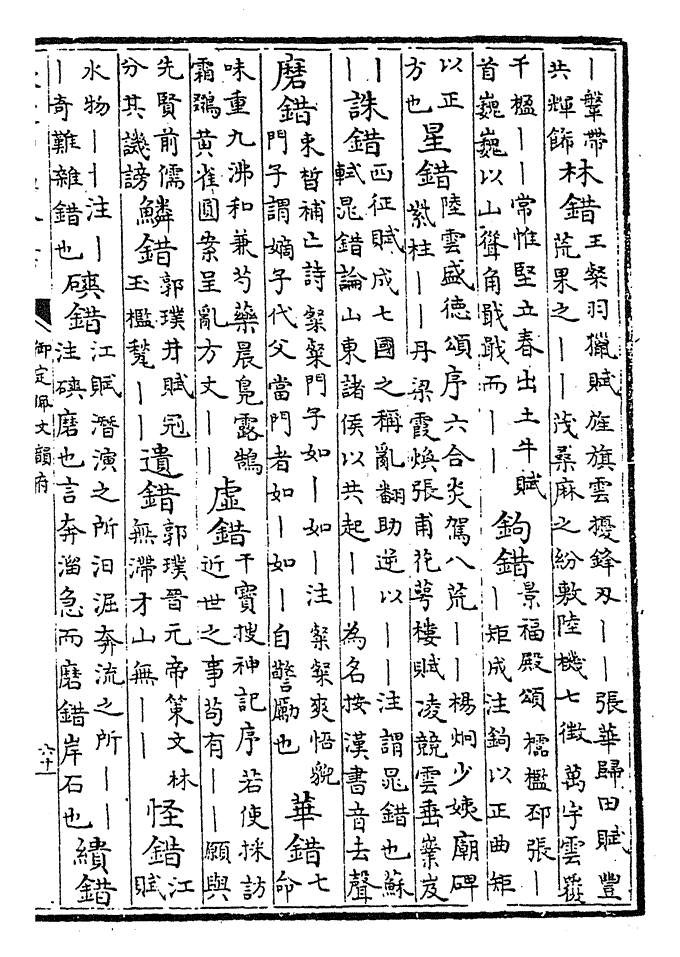 ｜鞶帶
共輝飾
林錯
王粲羽獵賦旌旗雲擾鋒刃｜｜張華歸田賦豐
荒果之｜｜茂桑麻之紛敷陸機七徵萬宇雲覆
千楹｜｜常惟堅立春出土牛賦
首巍巍以山聳角戢戢而｜｜
鉤錯
景福殿頌櫺檻邳張｜
｜矩成注鉤以正曲矩
以正
方也
星錯
陸雲盛德頌序六合炎駕八荒｜｜楊炯少姨廟碑
紫柱｜｜丹梁霞煥張甫花萼樓賦凌競雲垂嶪岌
｜
｜
誅錯
西征賦成七國之稱亂翻助逆以｜｜注謂晁錯也蘇
軾晁錯論山東諸侯以共起｜｜為名按漢書音去聲
磨錯
束晳補亡詩粲粲門子如｜如｜注粲粲爽悟貌
門子謂嫡子代父當門者如｜如｜自警勵也
華錯
七
命
味重九沸和兼芍藥晨鳧露鵠
霜鵽黃雀圓案星亂方丈｜｜
虛錯
干寶搜神記序若使採訪
近世之事苟有｜｜願與
先賢前儒
分其譏謗
鱗錯
郭璞井賦冠
玉檻甃｜｜
遺錯
郭璞晉元帝策文林
無滯才山無｜｜
怪錯
江
賦
水物｜｜注｜
｜奇難雜錯也
磢錯
江賦潛演之所汨淈奔流之所｜｜
注磢磨也言奔溜急而磨錯岸石也
繢錯
御定佩文韻府
六十一